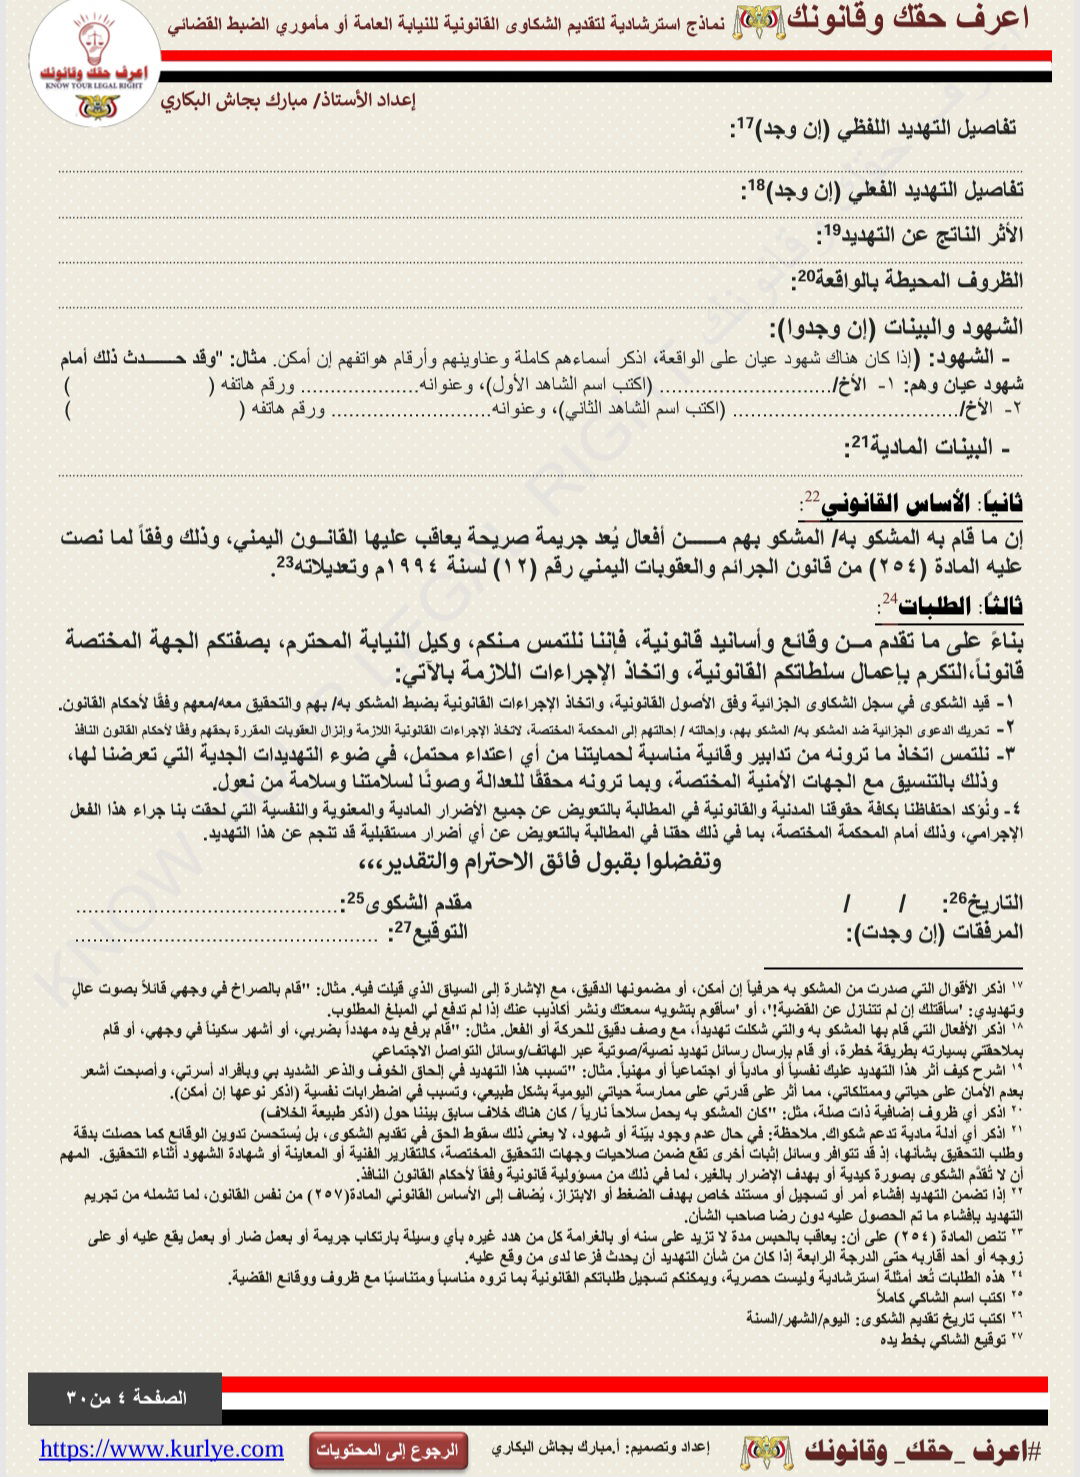 اعرف حقك وقانونك نماذج استرشادية لتقديم الشكاوى القانونية للنيابة العامة أو مأموري الضبط القضائي
اعرف حقك وقانونك
KNOW YOUR LEGAL RIGHT
إعداد الأستاذ/ مبارك بجاش البكاري
تفاصيل التهديد اللفظي (إن وجد)17:
تفاصيل التهديد الفعلي (إن وجد)18:
الأثر الناتج عن التهديد19:
الظروف المحيطة بالواقعة20:
الشهود والبينات (إن وجدوا):
- الشهود: (إذا كان هناك شهود عيان على الواقعة، اذكر أسماءهم كاملة وعناوينهم وأرقام هواتفهم إن أمكن. مثال: "وقد حـــــدث ذلك أمام
شهود عيان وهم: ١- الأخ/............................ (اكتب اسم الشاهد الأول)، وعنوانه.................... ورقم هاتفه ( )
٢- الأخ/...................................... (اكتب اسم الشاهد الثاني)، وعنوانه........................... ورقم هاتفه ( )
- البينات المادية21:
ثانيًا: الأساس القانوني22:
إن ما قام به المشكو به/ المشكو بهم مـــــن أفعال يُعد جريمة صريحة يعاقب عليها القانــون اليمني، وذلك وفقاً لما نصت
عليه المادة (٢٥٤) من قانون الجرائم والعقوبات اليمني رقم (١٢) لسنة ١٩٩٤م وتعديلاته23.
ثالثًا: الطلبات24:
بناءً على ما تقدم مــن وقائع وأسانيد قانونية، فإننا نلتمس منكم، وكيل النيابة المحترم، بصفتكم الجهة المختصة
قانوناً،التكرم بإعمال سلطاتكم القانونية، واتخاذ الإجراءات اللازمة بالآتي:
١- قيد الشكوى في سجل الشكاوى الجزائية وفق الأصول القانونية، واتخاذ الإجراءات القانونية بضبط المشكو به/ بهم والتحقيق معه/معهم وفقًا لأحكام القانون.
٢- تحريك الدعوى الجزائية ضد المشكو به/ المشكو بهم، وإحالته / إحالتهم إلى المحكمة المختصة، لاتخاذ الإجراءات القانونية اللازمة وإنزال العقوبات المقررة بحقهم وفقًا لأحكام القانون النافذ
٣- نلتمس اتخاذ ما ترونه من تدابير وقائية مناسبة لحمايتنا من أي اعتداء محتمل، في ضوء التهديدات الجدية التي تعرضنا لها،
وذلك بالتنسيق مع الجهات الأمنية المختصة، وبما ترونه محققًا للعدالة وصونًا لسلامتنا وسلامة من نعول.
٤- ونُؤكد احتفاظنا بكافة حقوقنا المدنية والقانونية في المطالبة بالتعويض عن جميع الأضرار المادية والمعنوية والنفسية التي لحقت بنا جراء هذا الفعل
الإجرامي، وذلك أمام المحكمة المختصة، بما في ذلك حقنا في المطالبة بالتعويض عن أي أضرار مستقبلية قد تنجم عن هذا التهديد.
وتفضلوا بقبول فائق الاحترام والتقدير،،،
التاريخ26: / / مقدم الشكوى25:....................................
المرفقات (إن وجدت): التوقيع27: ..........................................
١٧ اذكر الأقوال التي صدرت من المشكو به حرفياً إن أمكن، أو مضمونها الدقيق، مع الإشارة إلى السياق الذي قيلت فيه. مثال: "قام بالصراخ في وجهي قائلاً بصوت عالٍ
وتهديدي: 'سأقتلك إن لم تتنازل عن القضية!'، أو 'سأقوم بتشويه سمعتك ونشر أكاذيب عنك إذا لم تدفع لي المبلغ المطلوب.
١٨ اذكر الأفعال التي قام بها المشكو به والتي شكلت تهديداً، مع وصف دقيق للحركة أو الفعل. مثال: "قام برفع يده مهدداً بضربي، أو أشهر سكيناً في وجهي، أو قام
بملاحقتي بسيارته بطريقة خطرة، أو قام بإرسال رسائل تهديد نصية/صوتية عبر الهاتف/وسائل التواصل الاجتماعي
١٩ اشرح كيف أثر هذا التهديد عليك نفسياً أو مادياً أو اجتماعياً أو مهنياً. مثال: "تسبب هذا التهديد في إلحاق الخوف والذعر الشديد بي وبأفراد أسرتي، وأصبحت أشعر
بعدم الأمان على حياتي وممتلكاتي، مما أثر على قدرتي على ممارسة حياتي اليومية بشكل طبيعي، وتسبب في اضطرابات نفسية (اذكر نوعها إن أمكن).
٢٠ اذكر أي ظروف إضافية ذات صلة، مثل: "كان المشكو به يحمل سلاحاً نارياً / كان هناك خلاف سابق بيننا حول (اذكر طبيعة الخلاف)
٢١ اذكر أي أدلة مادية تدعم شكواك. ملاحظة: في حال عدم وجود بيّنة أو شهود، لا يعني ذلك سقوط الحق في تقديم الشكوى، بل يُستحسن تدوين الوقائع كما حصلت بدقة
وطلب التحقيق بشأنها، إذ قد تتوافر وسائل إثبات أخرى تقع ضمن صلاحيات وجهات التحقيق المختصة، كالتقارير الفنية أو المعاينة أو شهادة الشهود أثناء التحقيق. المهم
أن لا تُقدَّم الشكوى بصورة كيدية أو بهدف الإضرار بالغير، لما في ذلك من مسؤولية قانونية وفقاً لأحكام القانون النافذ.
٢٢ إذا تضمن التهديد إفشاء أمر أو تسجيل أو مستند خاص بهدف الضغط أو الابتزاز، يُضاف إلى الأساس القانوني المادة(٢٥٧) من نفس القانون، لما تشمله من تجريم
التهديد بإفشاء ما تم الحصول عليه دون رضا صاحب الشأن.
٢٣ تنص المادة (٢٥٤) على أن: يعاقب بالحبس مدة لا تزيد على سنه أو بالغرامة كل من هدد غيره بأي وسيلة بارتكاب جريمة أو بعمل ضار أو بعمل يقع عليه أو على
زوجه أو أحد أقاربه حتى الدرجة الرابعة إذا كان من شأن التهديد أن يحدث فزعا لدى من وقع عليه.
٢٤ هذه الطلبات تُعد أمثلة استرشادية وليست حصرية، ويمكنكم تسجيل طلباتكم القانونية بما تروه مناسباً ومتناسبًا مع ظروف ووقائع القضية.
٢٥ اكتب اسم الشاكي كاملاً
٢٦ اكتب تاريخ تقديم الشكوى: اليوم/الشهر/السنة
٢٧ توقيع الشاكي بخط يده
الصفحة ٤ من ٣٠
#اعرف _حقك_ وقانونك إعداد وتصميم: أ.مبارك بجاش البكاري الرجوع إلى المحتويات https://www.kurlye.com